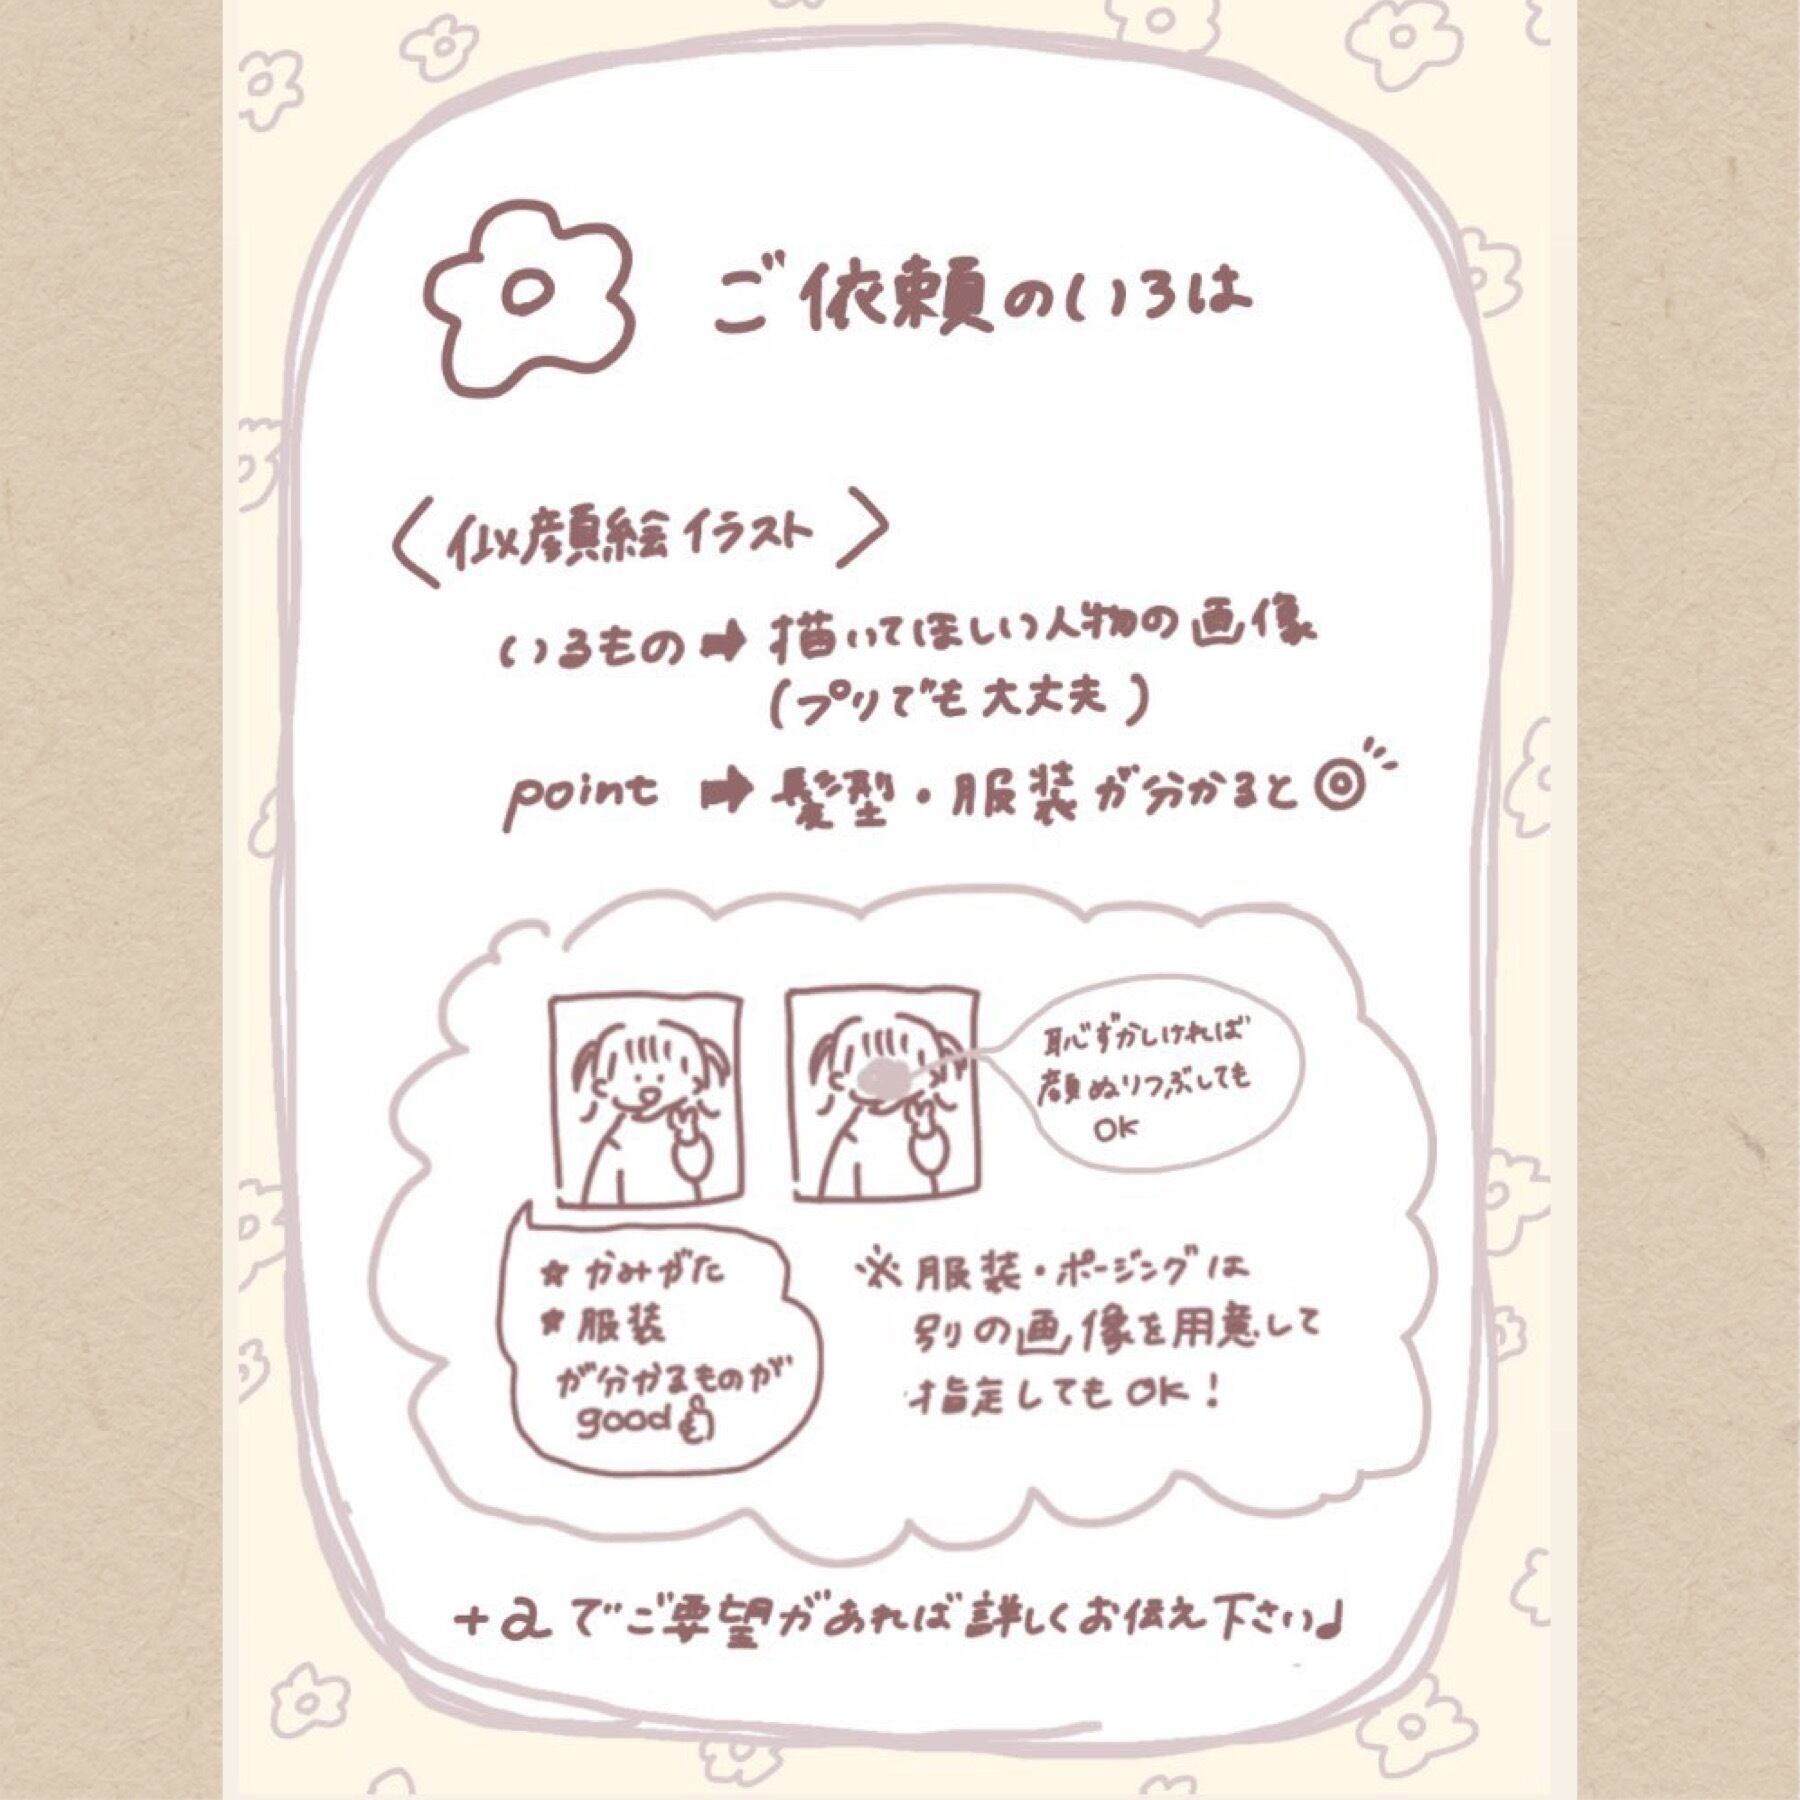 ご依頼のいろは
〈似顔絵イラスト〉
いるもの➡描いてほしい人物の画像
(プリでも大丈夫)
point ➡髪型・服装が分かると◎
恥ずかしければ
顔ぬりつぶしても
OK
★かみがた
★服装
が分かるものが
good👍
※服装・ポージングは
別の画像を用意して
指定してもOK!
+αでご要望があれば詳しくお伝え下さい♩